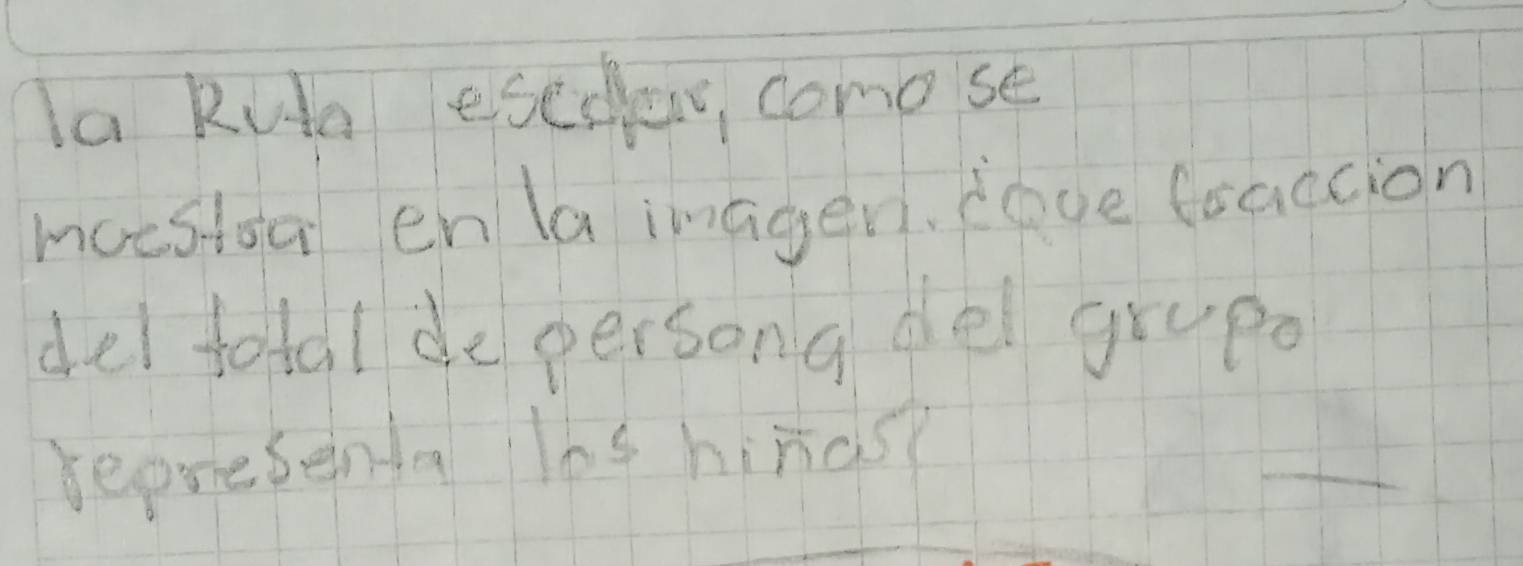 la Ruta escolar, como se
moestra en la imagen. ¿que fracción
del total de persona del grupo
representa las niñas?